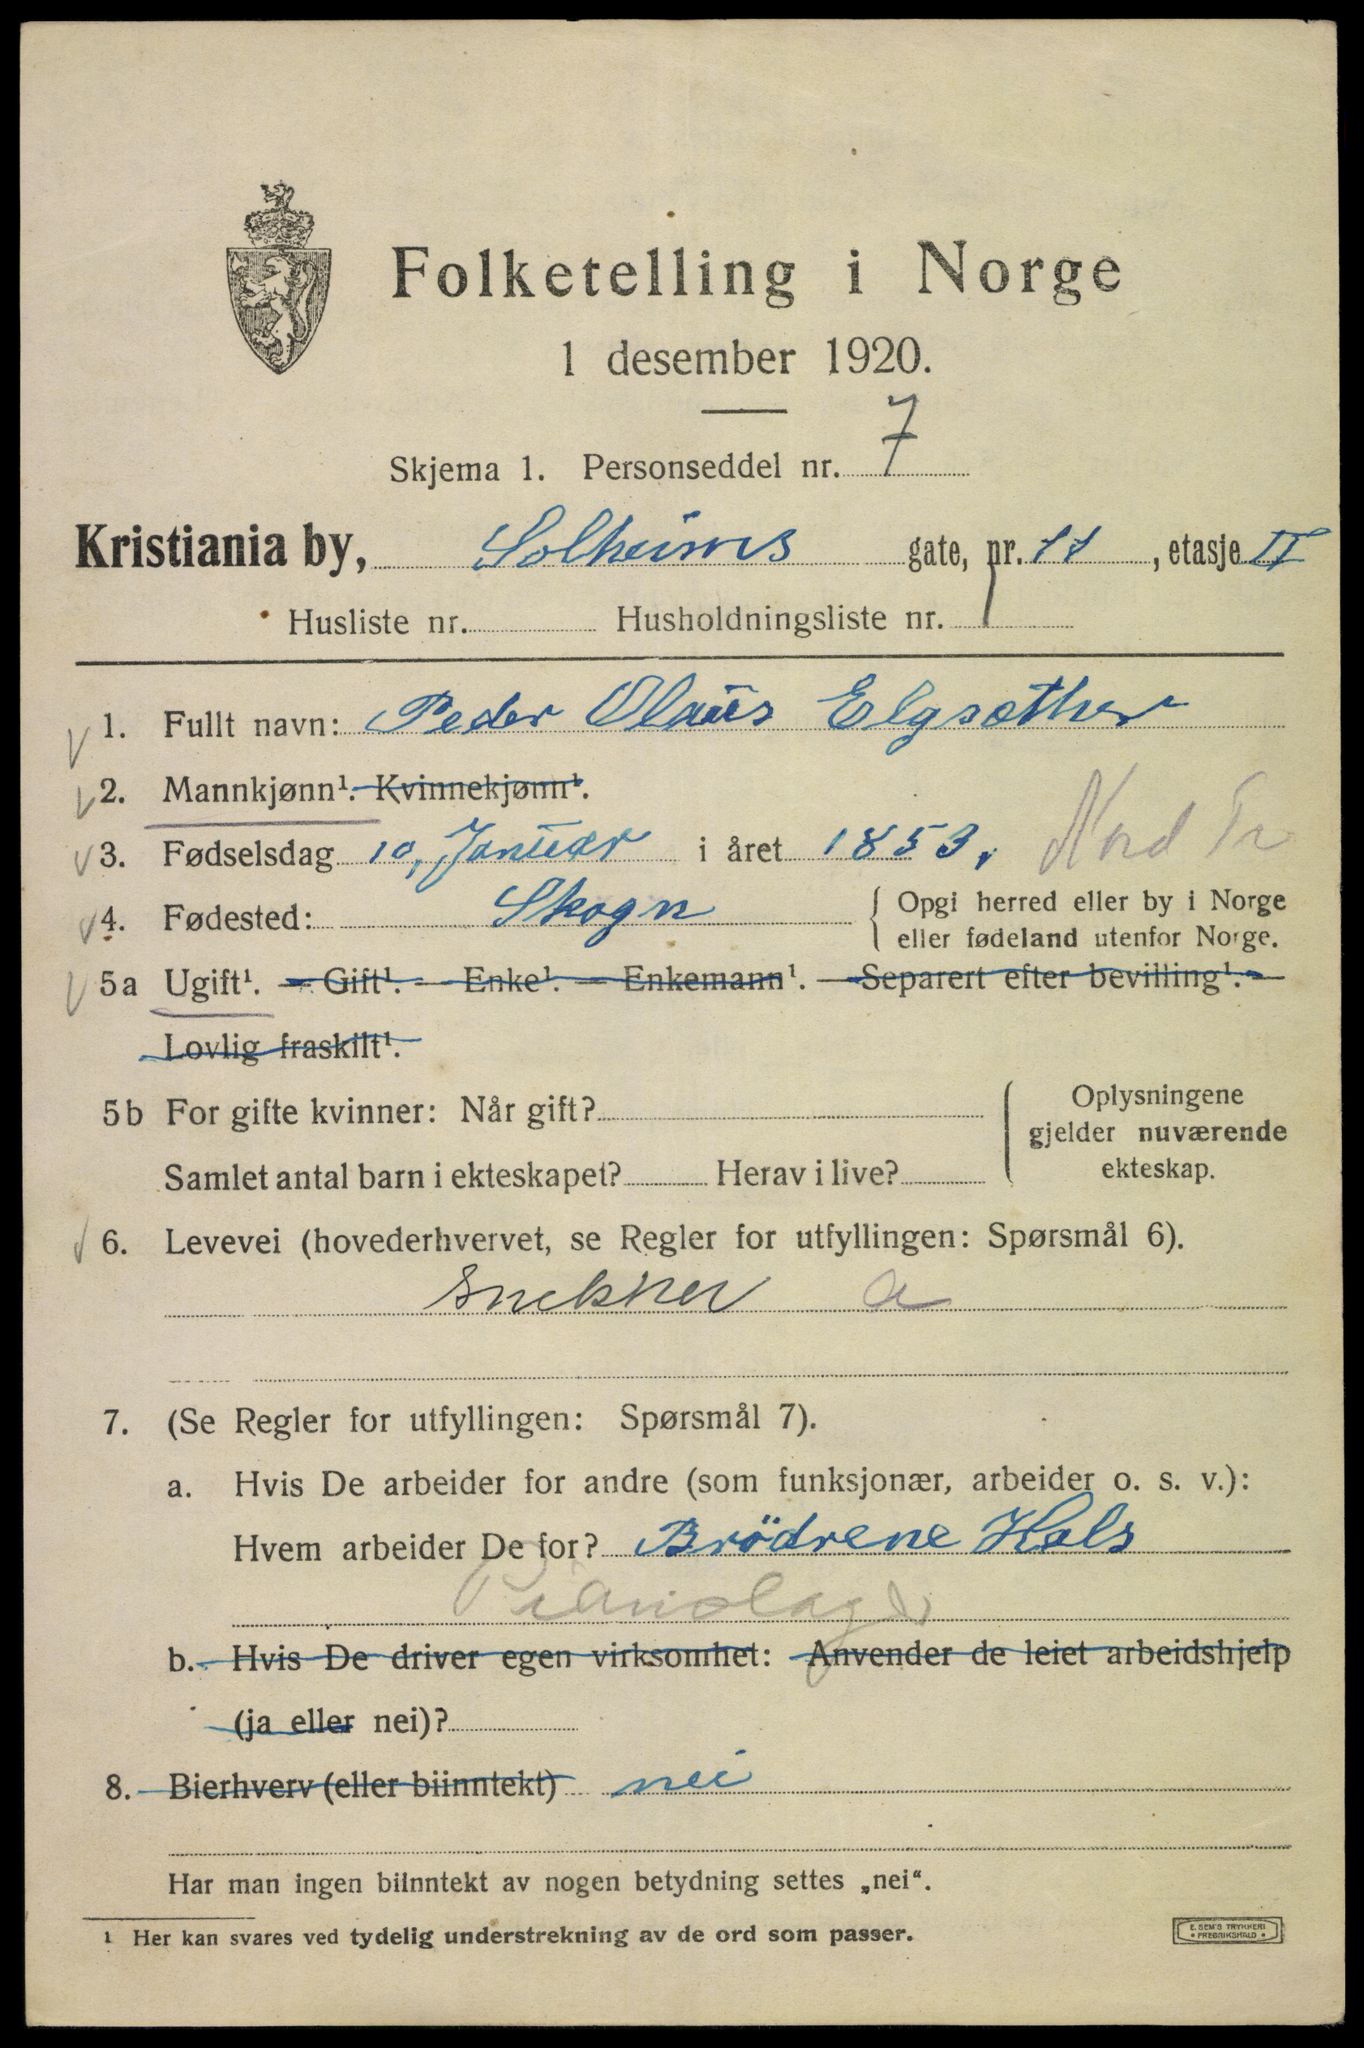 Folketelling i Norge
1 desember 1920.
Skjema 1. Personseddel nr. 7
Kristiania by, Solheims gate, nr. 11, etasje II
Husliste nr. Husholdningsliste nr. 1
1. Fullt navn: Peder Olaus Elgsæther
2. Mannkjønn¹. Kvinnekjønn¹.
3. Fødselsdag 10, Januar i året 1853, Nord Tr
4. Fødested: Skogn { Opgi herred eller by i Norge
eller fødeland utenfor Norge.
5a Ugift¹. — Gift¹. — Enke¹. — Enkemann¹. — Separert efter bevilling¹. —
Lovlig fraskilt¹.
5b For gifte kvinner: Når gift? Oplysningene
gjelder nuværende
Samlet antal barn i ekteskapet? Herav i live? ekteskap.
6. Levevei (hovederhvervet, se Regler for utfyllingen: Spørsmål 6).
Snekker a
7. (Se Regler for utfyllingen: Spørsmål 7).
a. Hvis De arbeider for andre (som funksjonær, arbeider o. s. v.):
Hvem arbeider De for? Brödrene Hals
Pianolager
b. Hvis De driver egen virksomhet: Anvender de leiet arbeidshjelp
(ja eller nei)?
8. Bierhverv (eller biinntekt) nei
Har man ingen biinntekt av nogen betydning settes „nei“.
¹ Her kan svares ved tydelig understrekning av de ord som passer.
E. SEM'S TRYKKERI
FREDRIKSHALD